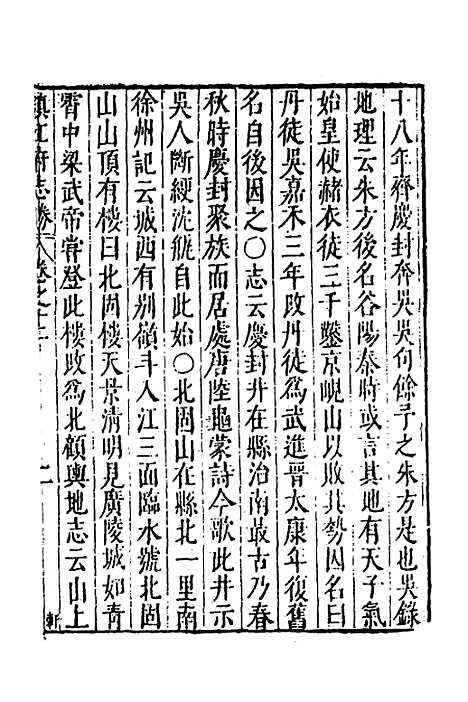 十八年齊慶封奔吳吳句餘予之朱方是也吳錄
地理云朱方後名谷陽秦時或言其地有天子氣
始皇使赭衣徒三千鑿京峴山以敗其勢因名曰
丹徒吳嘉禾三年改丹徒為武進晉太康年復舊
名自後因之〇志云慶封井在縣治南最古乃春
秋時慶封聚族而居處唐陸龜蒙詩今歌此井示
吳人斷綆沈瓶自此始〇北固山在縣北一里南
徐州記云城西有別嶺斗入江三面臨水號北固
山山頂有樓曰北固樓天景清明見廣陵城如青
霄中梁武帝嘗登此樓改為北顧輿地志云山上
鎮江府志勝 卷之十二